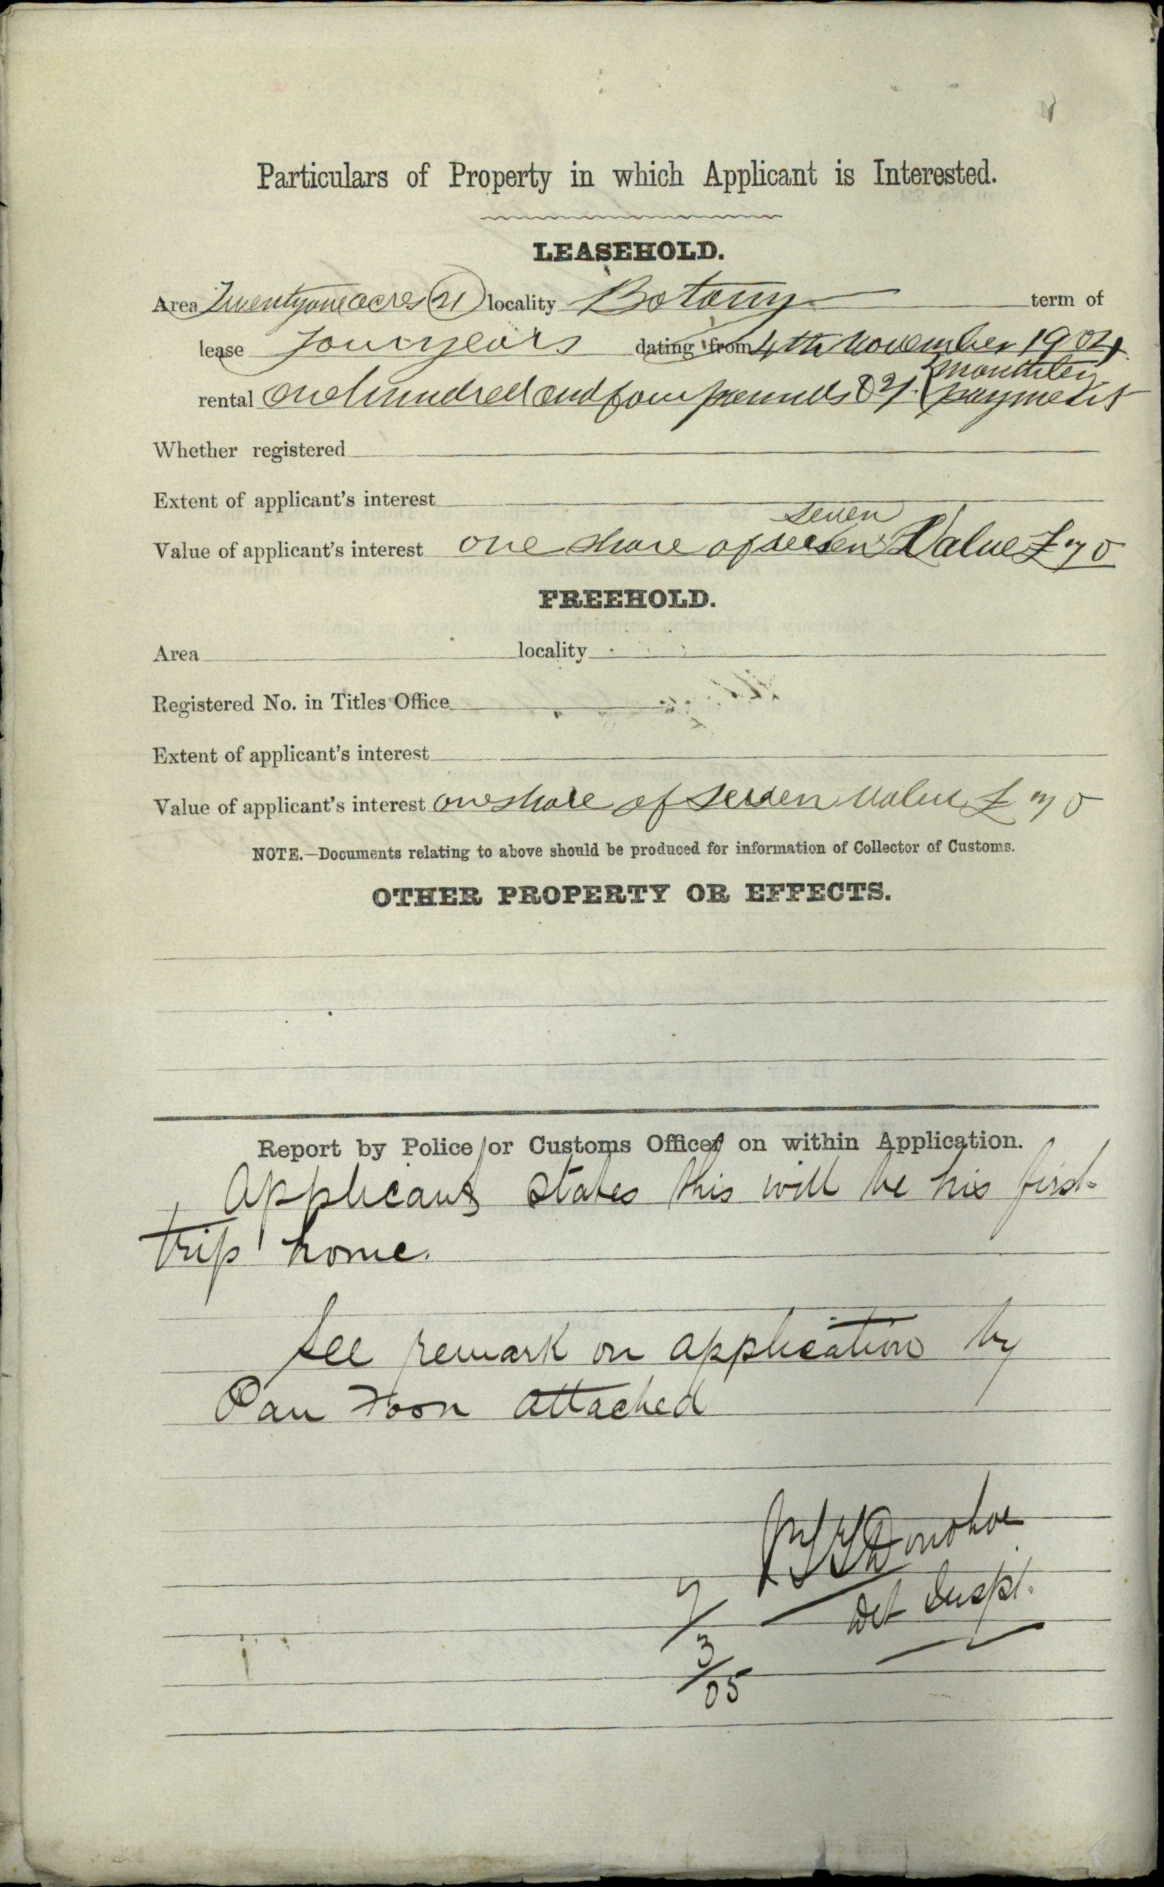 Particulars of Property in which Applicant is Interested.
LEASEHOLD.
Area Twentyone acres (21) locality Botany term of
lease Four years dating from 4th November 1904
rental one hundred and four pounds monthly payments
Whether registered
Extent of applicant's interest
seven
Value of applicant's interest one share of seven Value £70
FREEHOLD.
Area locality
Registered No. in Titles Office
Extent of applicant's interest
Value of applicant's interest one share of seven value £70
NOTE.—Documents relating to above should be produced for information of Collector of Customs.
OTHER PROPERTY OR EFFECTS.
Report by Police or Customs Officer on within Application.
Applicant states this will be his first
trip home.
See remark on application by
Pau Foon attached
Donohoe
Det Inspt.
7/3/05